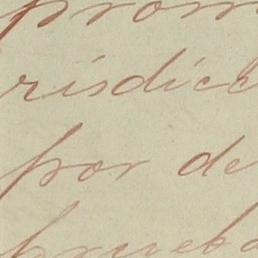 prom
risdicc
por de
prueba